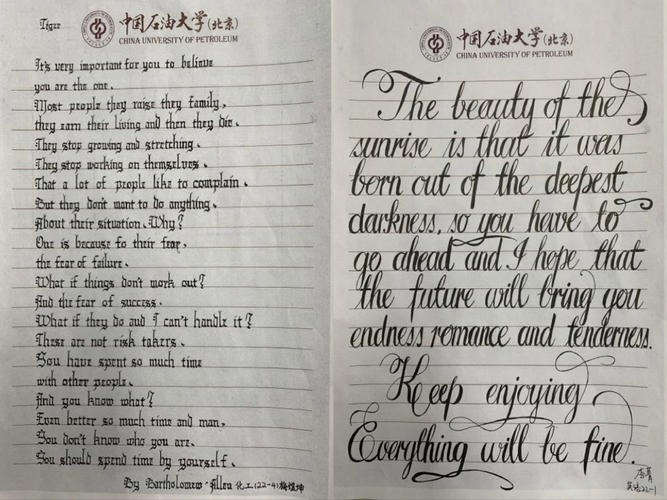 Tiger
中国石油大学(北京)
CHINA UNIVERSITY OF PETROLEUM
It's very important for you to believe
you are the one.
Most people they raise they family,
they earn their living and then they die.
They stop growing and stretching.
They stop working on themselves.
That a lot of people like to complain.
But they don't want to do anything.
About their situation. Why?
One is because fo their fear,
the fear of failure.
What if things don't work out?
And the fear of success.
What if they do and I can't handle it?
These are not risk takers.
You have spent so much time
with other people.
And you know what?
Even better so much time and man,
You don't know who you are.
You should spend time by yourself.
By Bartholomew·Allen 化工(22-4)
中国石油大学(北京)
CHINA UNIVERSITY OF PETROLEUM
The beauty of the
sunrise is that it was
born out of the deepest
darkness, so you have to
go ahead and I hope that
the future will bring you
endness romance and tenderness.
Keep enjoying
Everything will be fine.
英语22-1